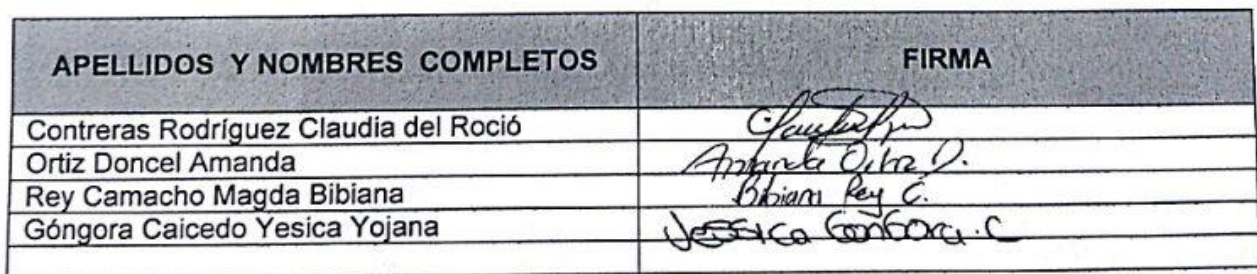 APELLIDOS Y NOMBRES COMPLETOS FIRMA
Contreras Rodríguez Claudia del Roció
Ortiz Doncel Amanda Amanda Ortiz D.
Rey Camacho Magda Bibiana Bibiana Rey C.
Góngora Caicedo Yesica Yojana Jessica Gongora. C